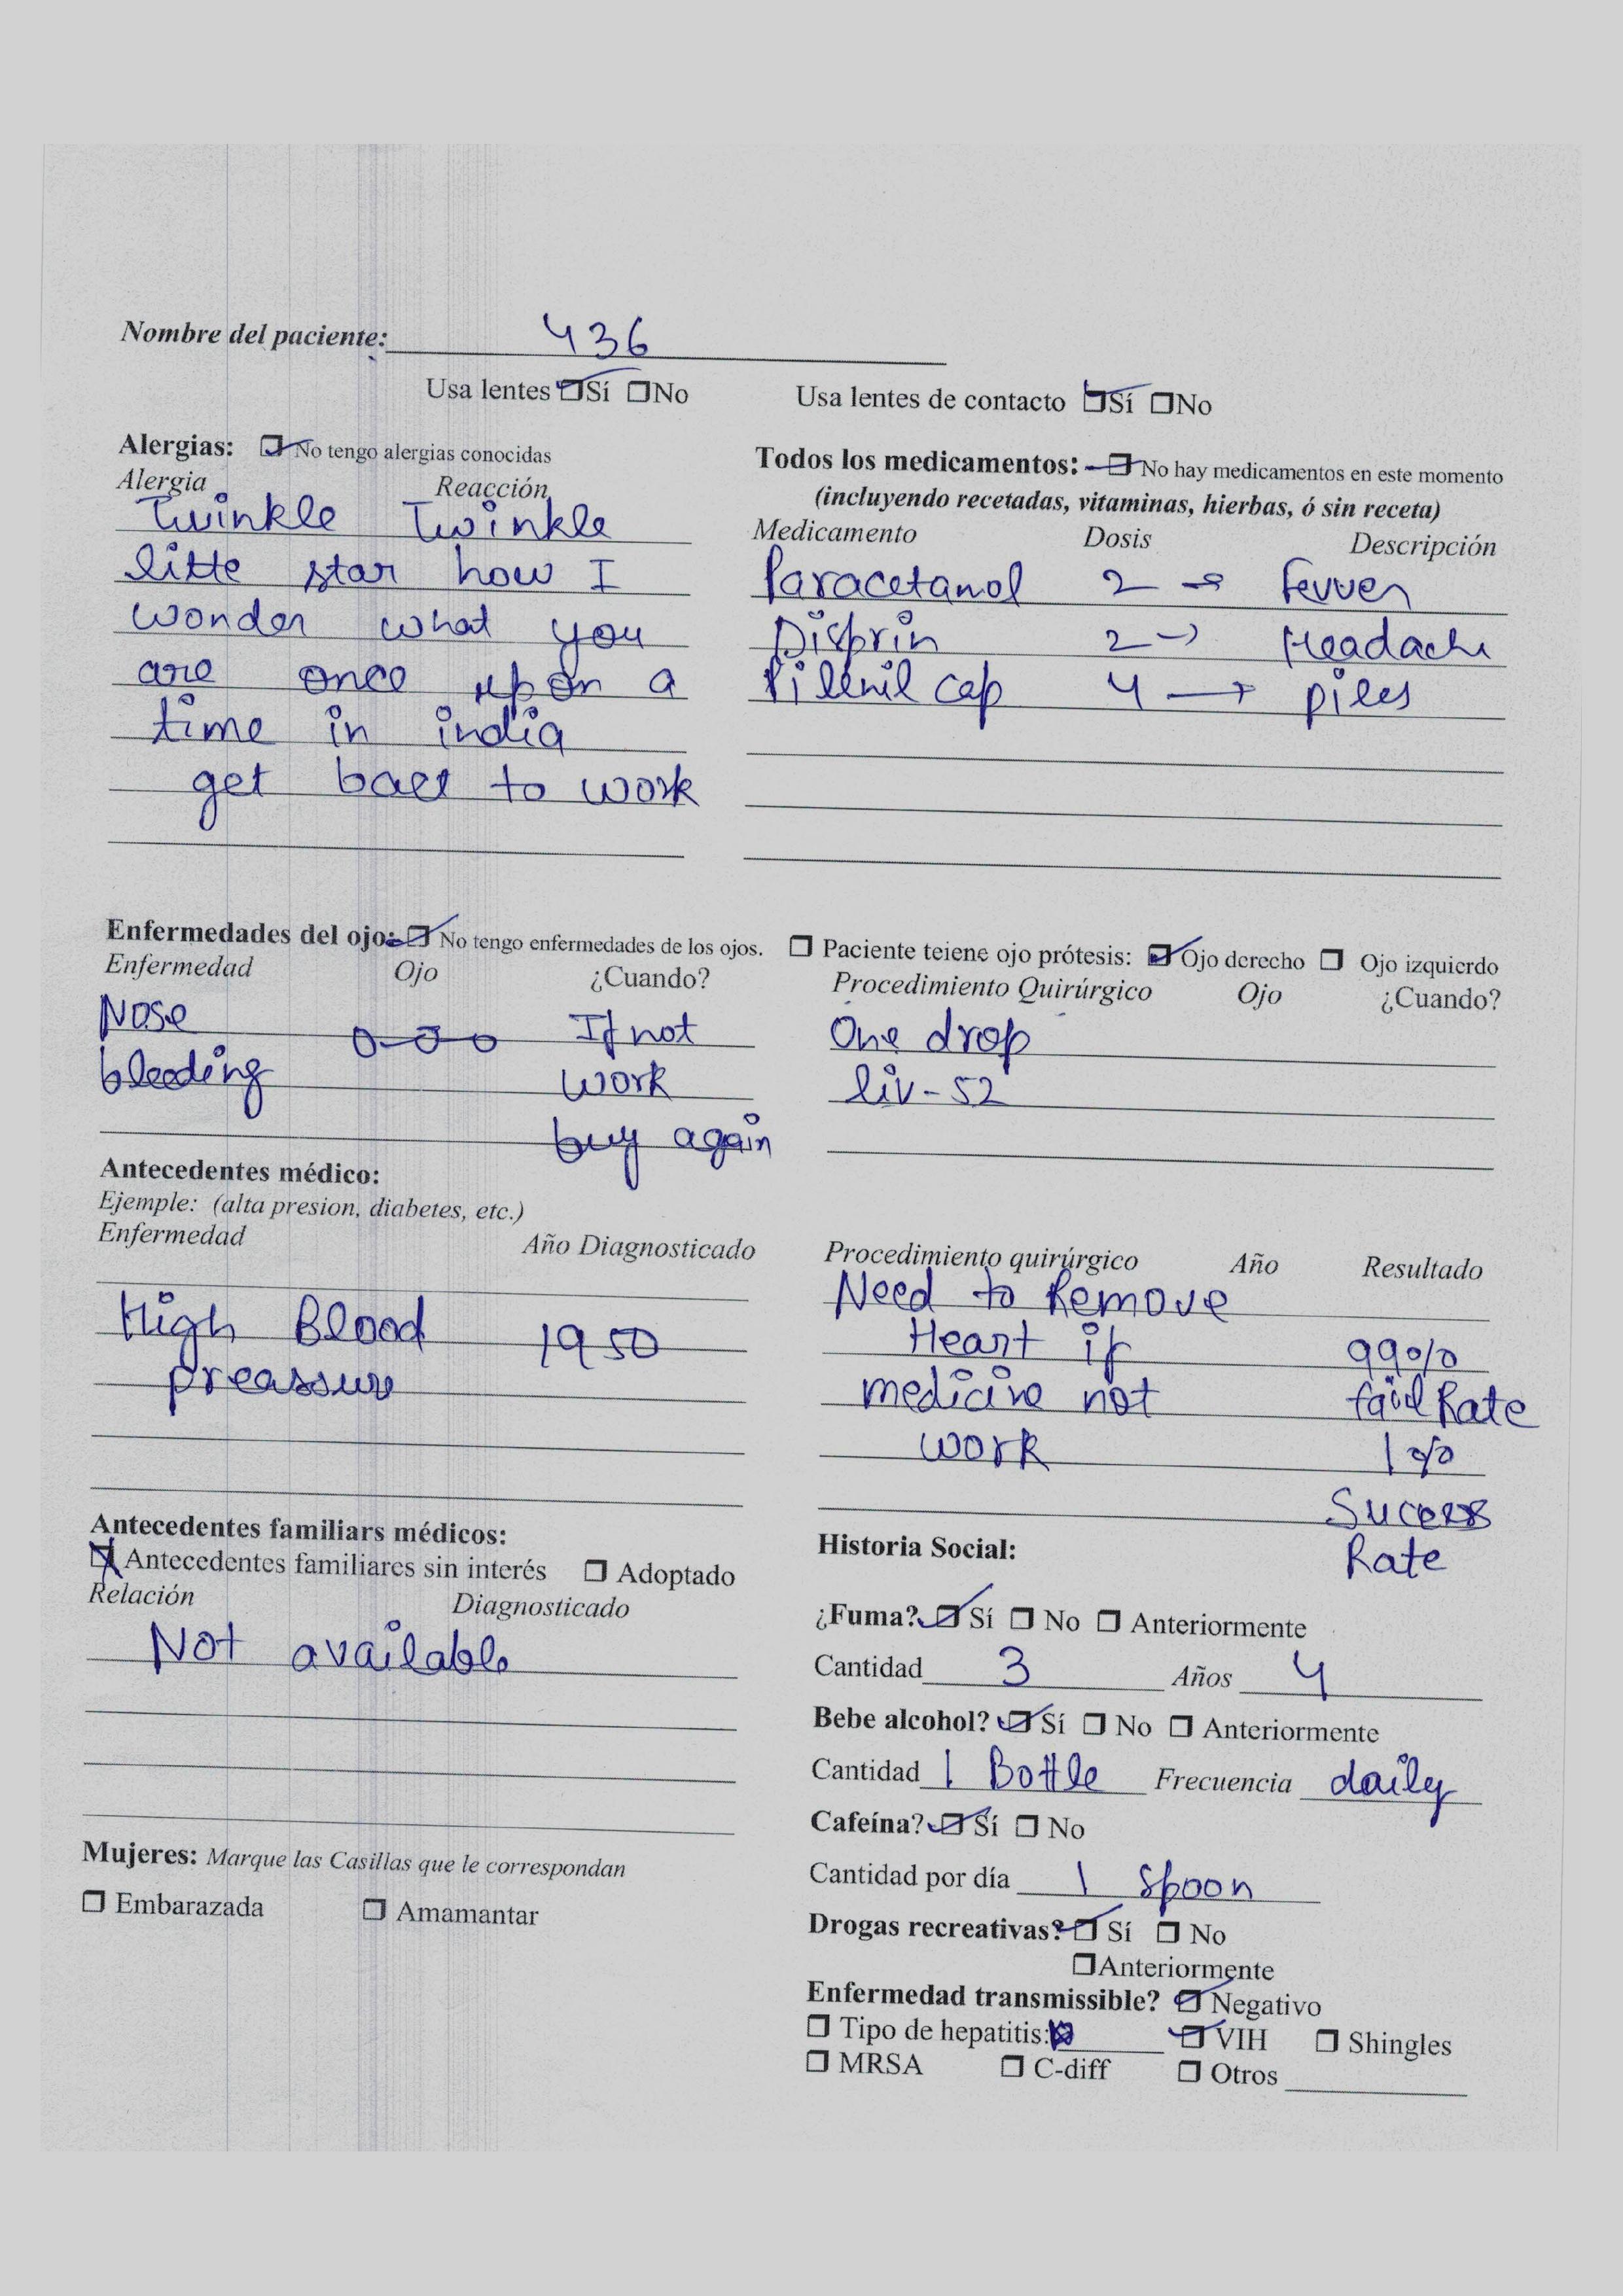 Nombre del paciente: 436
Usa lentes Sí No Usa lentes de contacto Sí No
Alergias: No tengo alergias conocidas
Alergia Reacción
Twinkle Twinkle
litte star how I
wonder what you
are once upon a
time in india
get back to work
Todos los medicamentos: No hay medicamentos en este momento
(incluyendo recetadas, vitaminas, hierbas, ó sin receta)
Medicamento Dosis Descripción
Paracetamol 2 → Fevver
Disprin 2 → Headache
Pilenil cap 4 → piles
Enfermedades del ojo: No tengo enfermedades de los ojos.
Enfermedad Ojo ¿Cuando?
Nose If not
bleeding work
buy again
Paciente teiene ojo prótesis: Ojo derecho Ojo izquierdo
Procedimiento Quirúrgico Ojo ¿Cuando?
One drop
liv-52
Antecedentes médico:
Ejemple: (alta presion, diabetes, etc.)
Enfermedad Año Diagnosticado
High Blood 1950
preassure
Procedimiento quirúrgico Año Resultado
Need to Remove
Heart if 99%
medicine not fail Rate
work 1%
Sucess
Rate
Antecedentes familiars médicos:
Antecedentes familiares sin interés Adoptado
Relación Diagnosticado
Not available
Mujeres: Marque las Casillas que le correspondan
Embarazada Amamantar
Historia Social:
¿Fuma? Sí No Anteriormente
Cantidad 3 Años 4
Bebe alcohol? Sí No Anteriormente
Cantidad 1 Bottle Frecuencia daily
Cafeína? Sí No
Cantidad por día 1 Spoon
Drogas recreativas? Sí No
Anteriormente
Enfermedad transmissible? Negativo
Tipo de hepatitis: VIH Shingles
MRSA C-diff Otros